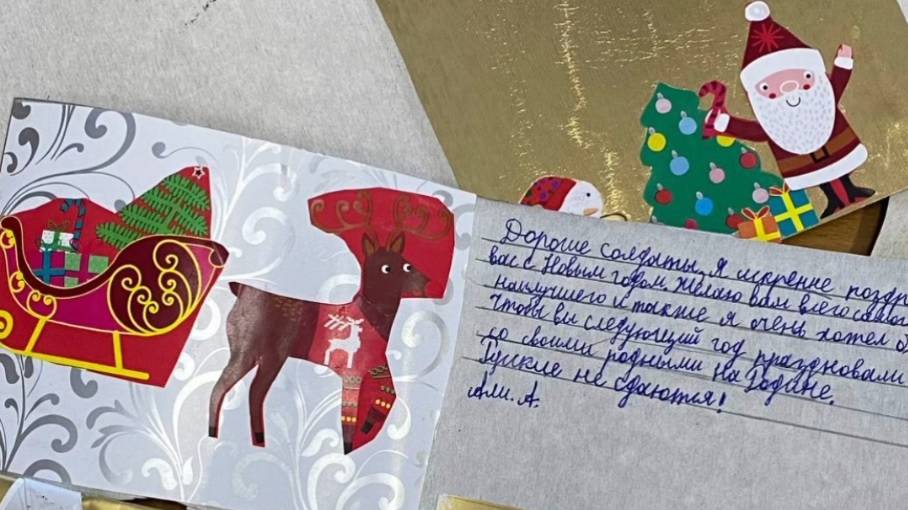 Дорогие солдаты, я искренне поздр
вас с Новым годом. Желаю вам всего самого
наилучшего и также я очень хотел б
чтобы вы следующий год праздновали
со своими родными на Родине.
Русские не сдаются!
Али. А.